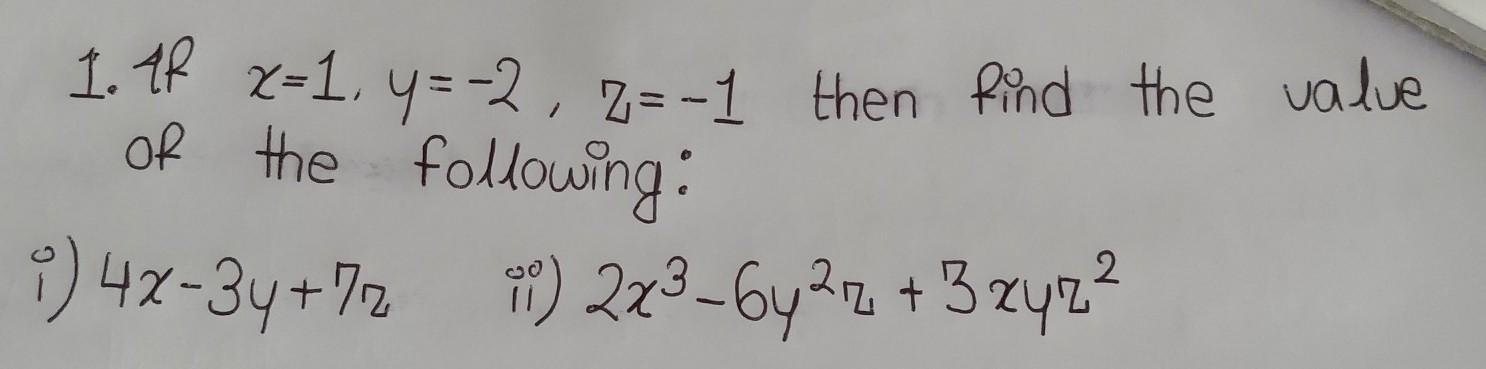 1. If x=1, y=-2, z=-1 then find the value
of the following:
i) 4x-3y+7z ii) 2x³-6y²z+3xyz²